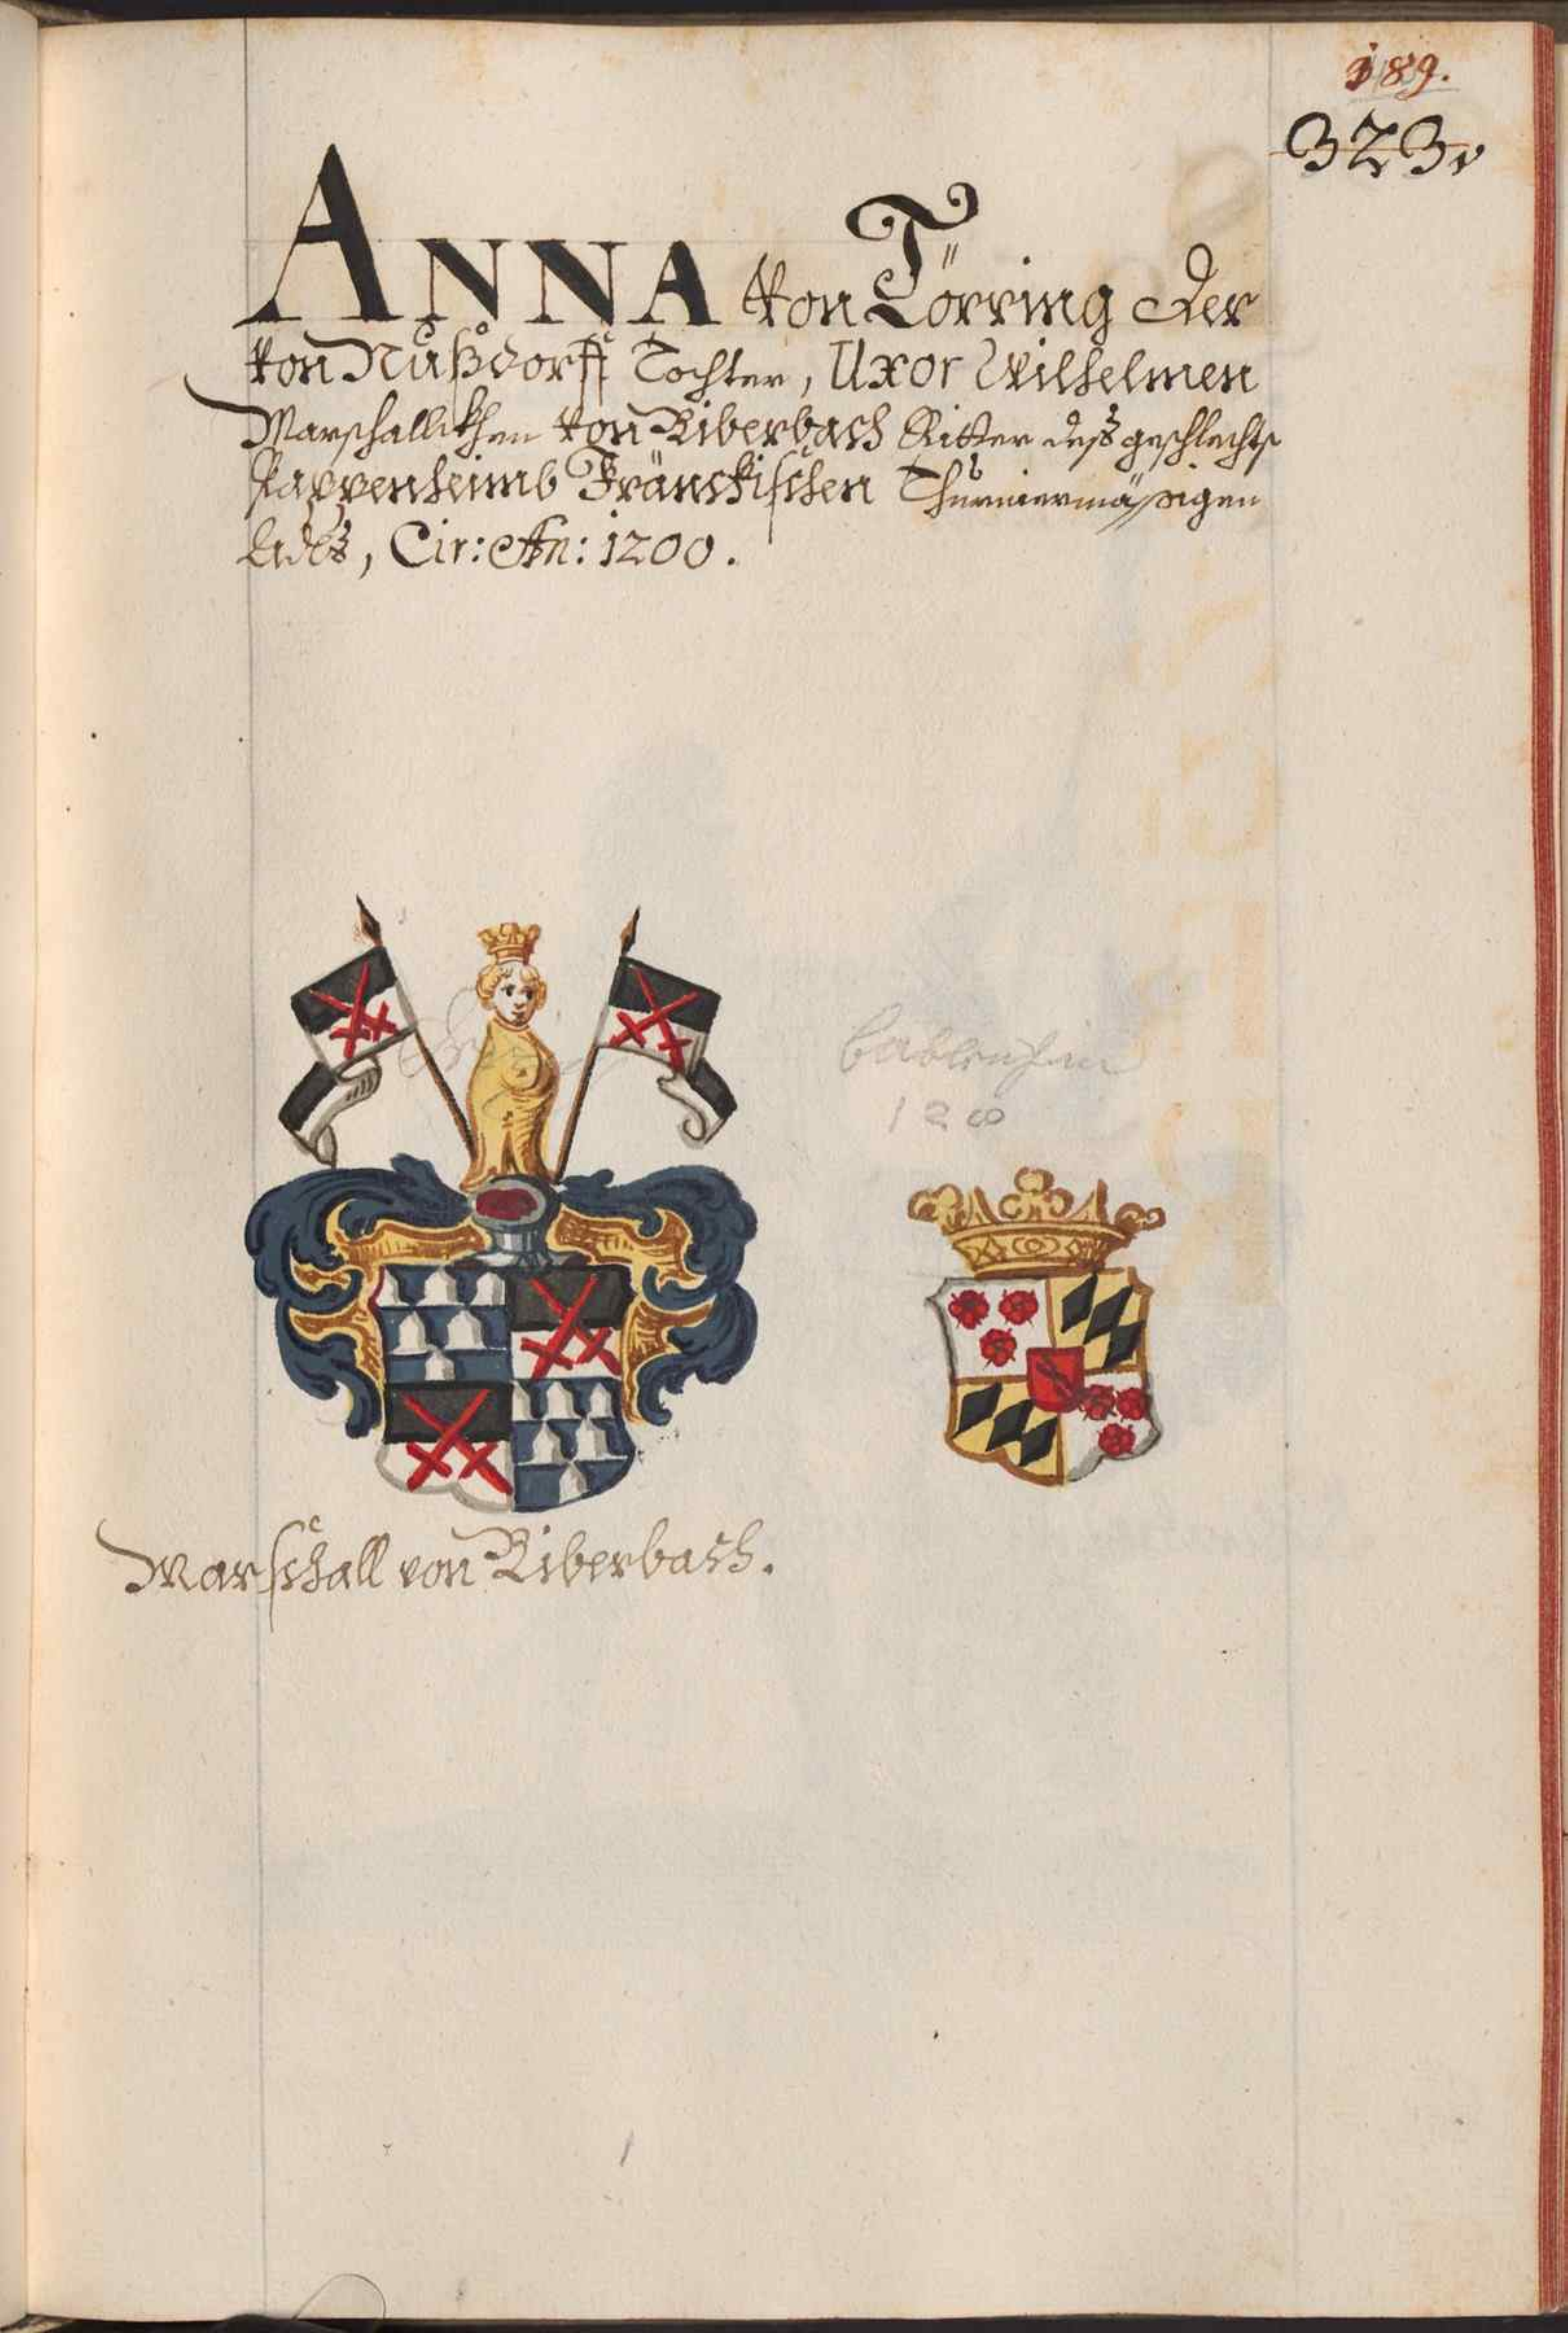 189.
323v
ANNA von Törring der
von Nußdorff Tochter, Uxor Wilhelmen
Marschallkhen von Biberbach Ritter deß geschlechts
Pappenheimb Fränckischen Thurniermässigen
Adls, Cir: An: 1200.
128
Marschall von Biberbach.